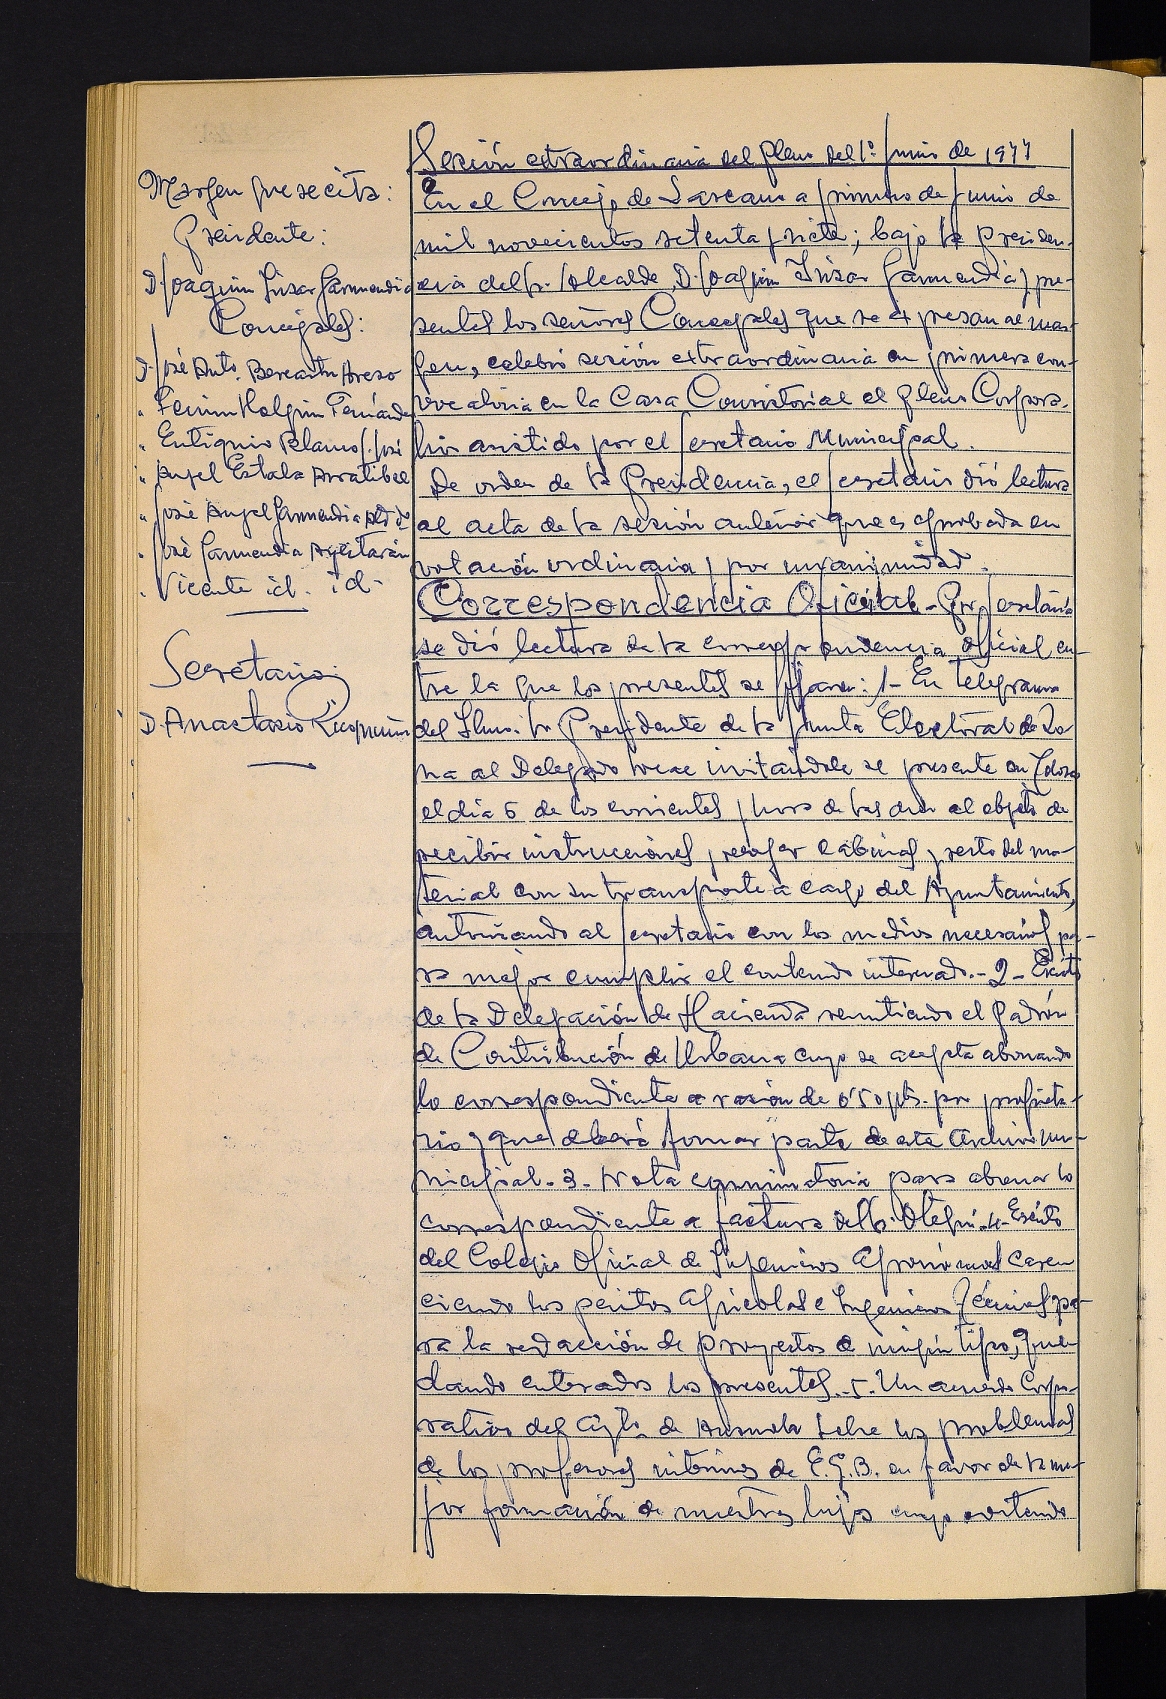 Margen que se cita:
Presidente:
D. Joaquin Irizar Garmendia
Concejales:
D. José Anto. Bereciartu Areso
" Fermin Holguin Fernández
" Eutiquio Blanco S. José
" Angel Estala Arratibel
" José Angel Garmendia
" José Garmendia Ayestarán
" Vicente id. id.
Secretario:
D. Anastasio
Sesión extraordinaria del Pleno del 1º Junio de 1977
En el Concejo de Lazcano a primero de Junio de
mil novecientos setenta y siete; bajo la presiden-
cia del Sr. Alcalde D. Joaquin Irizar Garmendia y pre-
sentes los señores Concejales que se expresan al mar-
gen, celebró sesión extraordinaria en primera con-
vocatoria en la Casa Consistorial el Pleno Corpora-
tivo asistido por el Secretario Municipal.
De orden de la Presidencia, el Secretario dió lectura
al acta de la sesión anterior que es aprobada en
votación ordinaria y por unanimidad.
Correspondencia Oficial - Por Secretaría
se dió lectura de la correspondencia oficial en-
tre la que los presentes se fijaron: 1- Un telegrama
del Ilmo. Sr. Presidente de la Junta Electoral de Zo-
na al Delegado invitándole se presente en Tolosa
el dia 6 de los corrientes y hora de las diez al objeto de
recibir instrucciones, recoger cabinas y resto del ma-
terial con su transporte a cargo del Ayuntamiento,
autorizando al Secretario con los medios necesarios pa-
ra mejor cumplir el contenido interesado.- 2- Escrito
de la Delegación de Hacienda remitiendo el Padrón
de Contribución de Urbana cuyo se acepta abonando
lo correspondiente a razón de 0'50 pts. por propieta-
rio y que deberá formar parte de este Archivo mu-
nicipal.- 3- Nota conminatoria para abonar lo
correspondiente a factura del Sr. Otegui.- 4- Escrito
del Colegio Oficial de Ingenieros Agronómos caren
ciendo los peritos Agricolas e Ingenieros Técnicos pa-
ra la redacción de proyectos de ningún tipo, que-
dando enterados los presentes.- 5- Un acuerdo Corpo-
rativo del Ayto. de sobre los problemas
de los profesores interinos de E.G.B. en favor de la me-
jor formación de nuestros hijos cuyo contenido